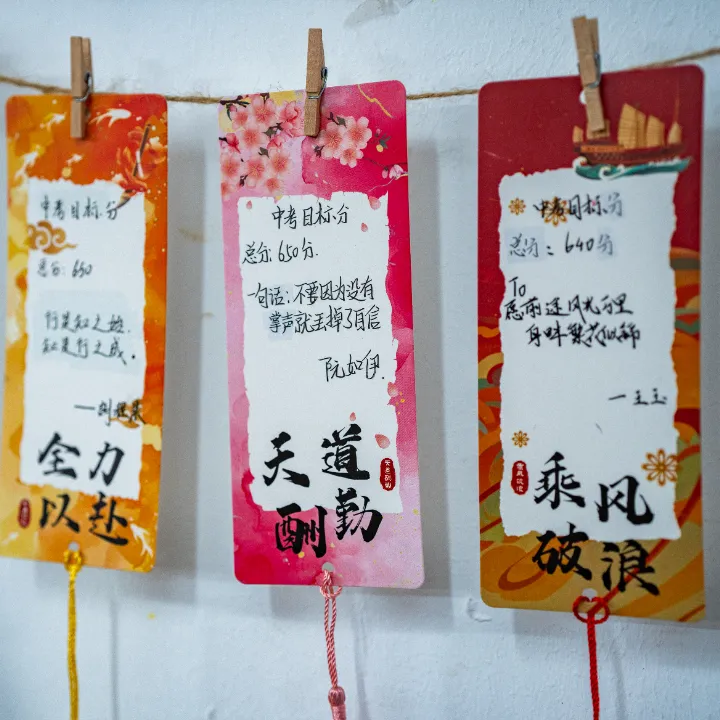 中考目标分
总分：650
行是知之始，
知是行之成。
全力
以赴
中考目标分
总分：650分.
一句话：不要因为没有
掌声就丢掉了自信
阮如伊.
天道
酬勤
中考目标分
总分：640分
To
愿前途风光万里
身畔繁花似锦
乘风
破浪